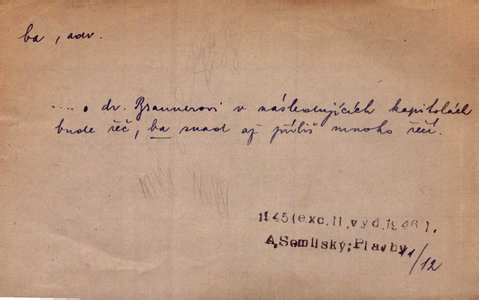 ba, adv.
.... o dr. Braunerovi v následujících kapitolách
bude řeč, ba snad až příliš mnoho řečí.
1945 (exc. II, vyd. 1946),
A, Semilský; Plavby
11/12